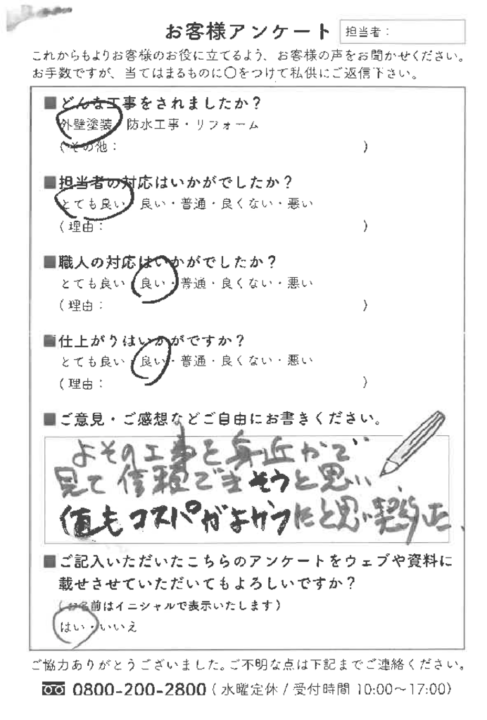 お客様アンケート
担当者：
これからもよりお客様のお役に立てるよう、お客様の声をお聞かせください。
お手数ですが、当てはまるものに〇をつけて私供にご返信下さい。
■どんな工事をされましたか？
外壁塗装・防水工事・リフォーム
(その他： )
■担当者の対応はいかがでしたか？
とても良い・良い・普通・良くない・悪い
(理由： )
■職人の対応はいかがでしたか？
とても良い・良い・普通・良くない・悪い
(理由： )
■仕上がりはいかがですか？
とても良い・良い・普通・良くない・悪い
(理由： )
■ご意見・ご感想などご自由にお書きください。
よその工事を身近かで
見て信頼できそうと思い、
値もコスパがよかっ と思い契約した、
■ご記入いただいたこちらのアンケートをウェブや資料に
載せさせていただいてもよろしいですか？
(お名前はイニシャルで表示いたします)
はい・いいえ
ご協力ありがとうございました。ご不明な点は下記までご連絡ください。
0800-200-2800 (水曜定休/受付時間 10:00〜17:00)